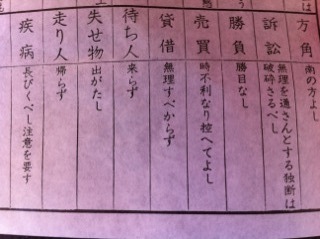 方角 南の方よし
訴訟 無理を通さんとする独断は
破砕さるべし
勝負 勝目なし
売買 時不利なり控へてよし
貸借 無理すべからず
待ち人 来らず
失せ物 出がたし
走り人 帰らず
疾病 長びくべし注意を要す